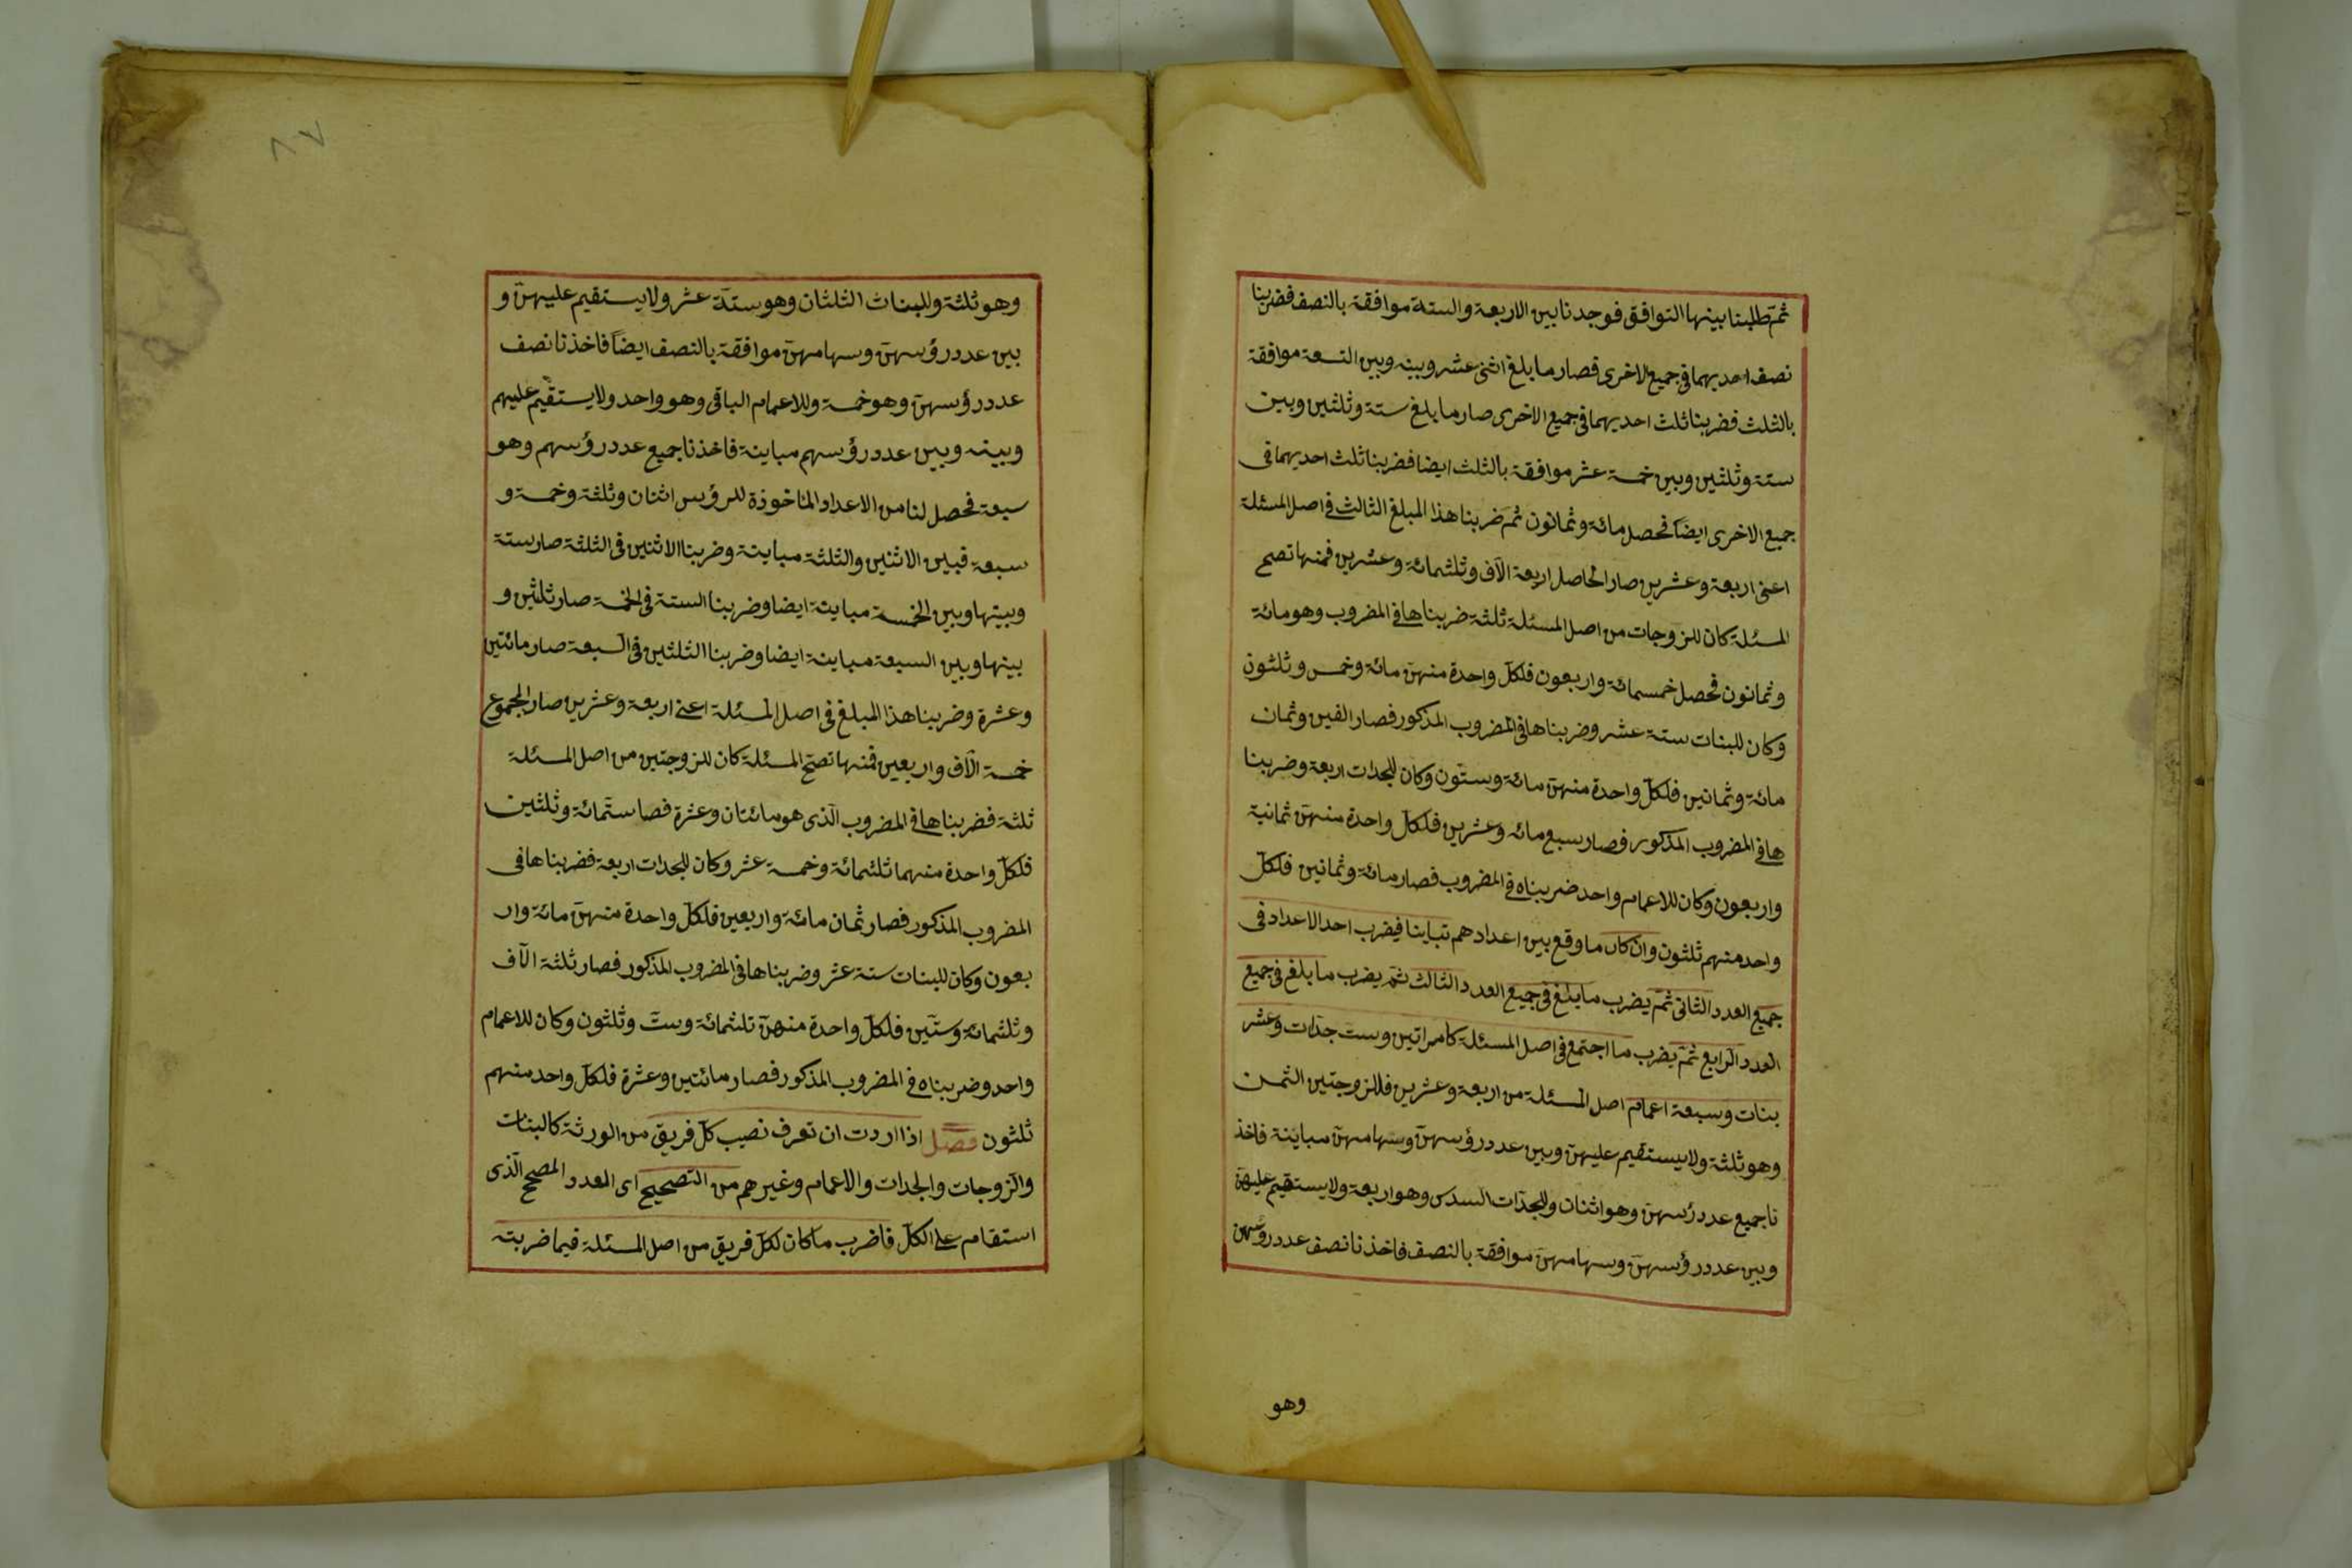 ثمّ طلبنا بينها التوافق فوجدنا بين الاربعة والستة موافقة بالنصف فضربنا
نصف احديهما فى جميع الاخرى فصار ما يلغ اثنى عشر وبينه وبين التسعة موافقة
بالثلث فضربنا ثلث احديهما فى جميع الاخرى صار ما يلغ ستة وثلثين وبين
ستة وثلثين وبين خمسة عشر موافقة بالثلث ايضا فضربنا ثلث احديهما فى
جميع الاخرى ايضاً فحصل مائة وثمانون ثمّ ضربنا هذا المبلغ الثالث فى اصل المسئلة
اعنى اربعة وعشرين صار الحاصل اربعة آلاف وثلثمائة وعشرين فمنها تصح
المسئلة كان للزوجات من اصل المسئلة ثلثة ضربناها فى المضروب وهو مائة
وثمانون فحصل خمسمائة واربعون فلكلّ واحدة منهنّ مائة وخمس وثلثون
وكان للبنات ستة عشر وضربناها فى المضروب المذكور فصار الفين وثمان
مائة وثمانين فلكلّ واحدة منهنّ مائة وستّون وكان للجدات اربعة وضربنا
ها فى المضروب المذكور فصار سبع مائه وعشرين فلكلّ واحدة منهنّ ثمانية
واربعون وكان للاعمام واحد ضربناه فى المضروب فصار مائة وثمانين فلكلّ
واحد منهم ثلثون وان كان ما وقع بين اعدادهم تباينا فيضرب احد الاعداد فى
جميع العدد الثانى ثمّ يضرب ما يلغ فى جميع العدد الثالث ثمّ يضرب ما يلغ فى جميع
العدد الرابع ثمّ يضرب ما اجتمع فى اصل المسئلة كامراتين وست جدّات وعشر
بنات وسبعة اعمام اصل المسئلة من اربعة وعشرين فللزوجتين الثمن
وهو ثلثة ولا يستقيم عليهنّ وبين عدد رؤسهنّ وسهامهنّ مباينة فاخذ
نا جميع عدد رؤسهنّ وهو اثنان وللجدّات السدس وهو اربعة ولا يستقيم عليهنّ
وبين عدد رؤسهنّ وسهامهنّ موافقة بالنصف فاخذنا نصف عدد رؤسهن
وهو
وهو ثلثة وللبنات الثلثان وهو ستّة عشر ولا يستقيم عليهنّ و
بين عدد رؤسهنّ وسهامهنّ موافقة بالنصف ايضاً فاخذنا نصف
عدد رؤسهنّ وهو خمسة وللاعمام الباقى وهو واحد ولا يستقيم عليهم
وبينه وبين عدد رؤسهم مباينة فاخذنا جميع عدد رؤسهم وهو
سبعة فحصل لنا من الاعداد المأخوذة للرؤس اثنان وثلثة وخمسة و
سبعة فبين الاثنين والثلثة مباينة وضربنا الاثنين فى الثلثة صار ستة
وبينها وبين الخمسة مباينة ايضا وضربنا الستة فى الخمسة صار ثلثين و
بينها وبين السبعة مباينة ايضا وضربنا الثلثين فى السبعة صار مائتين
وعشرة وضربنا هذا المبلغ فى اصل المسئلة اعنى اربعة وعشرين صار المجموع
خمسة آلاف واربعين فمنها تصحّ المسئلة كان للزوجتين من اصل المسئلة
ثلثة فضربناها فى المضروب الّذى هو مائتان وعشرة فصا ستّمائة وثلثين
فلكلّ واحدة منهما ثلثمائة وخمسة عشر وكان للجدات اربعة فضربناها فى
المضروب المذكور فصار ثمان مائة واربعين فلكلّ واحدة منهنّ مائة وار
بعون وكان للبنات ستة عشر وضربناها فى المضروب المذكور فصار ثلثة آلاف
وثلثمائة وستّين فلكلّ واحدة منهنّ ثلثمائة وستّ وثلثون وكان للاعمام
واحد وضربناه فى المضروب المذكور فصار مائتين وعشرة فلكلّ واحد منهم
ثلثون فصل اذا اردت ان تعرف نصيب كلّ فريق من الورثة كالبنات
والزّوجات والجدات والاعمام وغيرهم من التّصحيح اى العدد المصحح الّذى
استقام على الكلّ فاضرب ما كان لكلّ فريق من اصل المسئلة فيما ضربته